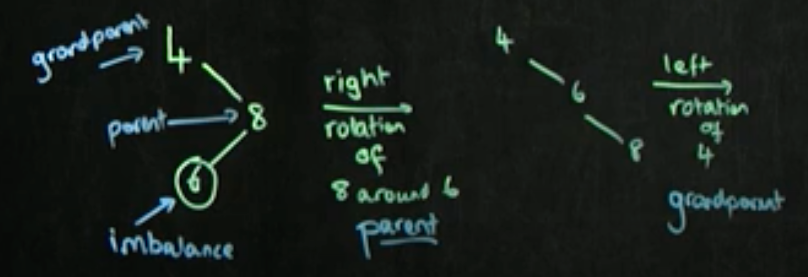 grandparent
4
parent
8
6
imbalance
right
rotation
of
8 around 6
parent
4
6
8
left
rotation
of
4
grandparent